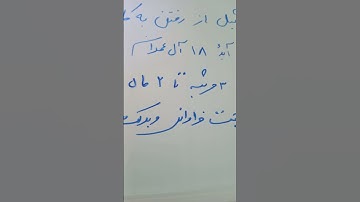 قبل از رفتن به
آیهٔ ۱۸ آل عمران
۳ مرتبه تا ۲ ماه
فراوانی و برکت